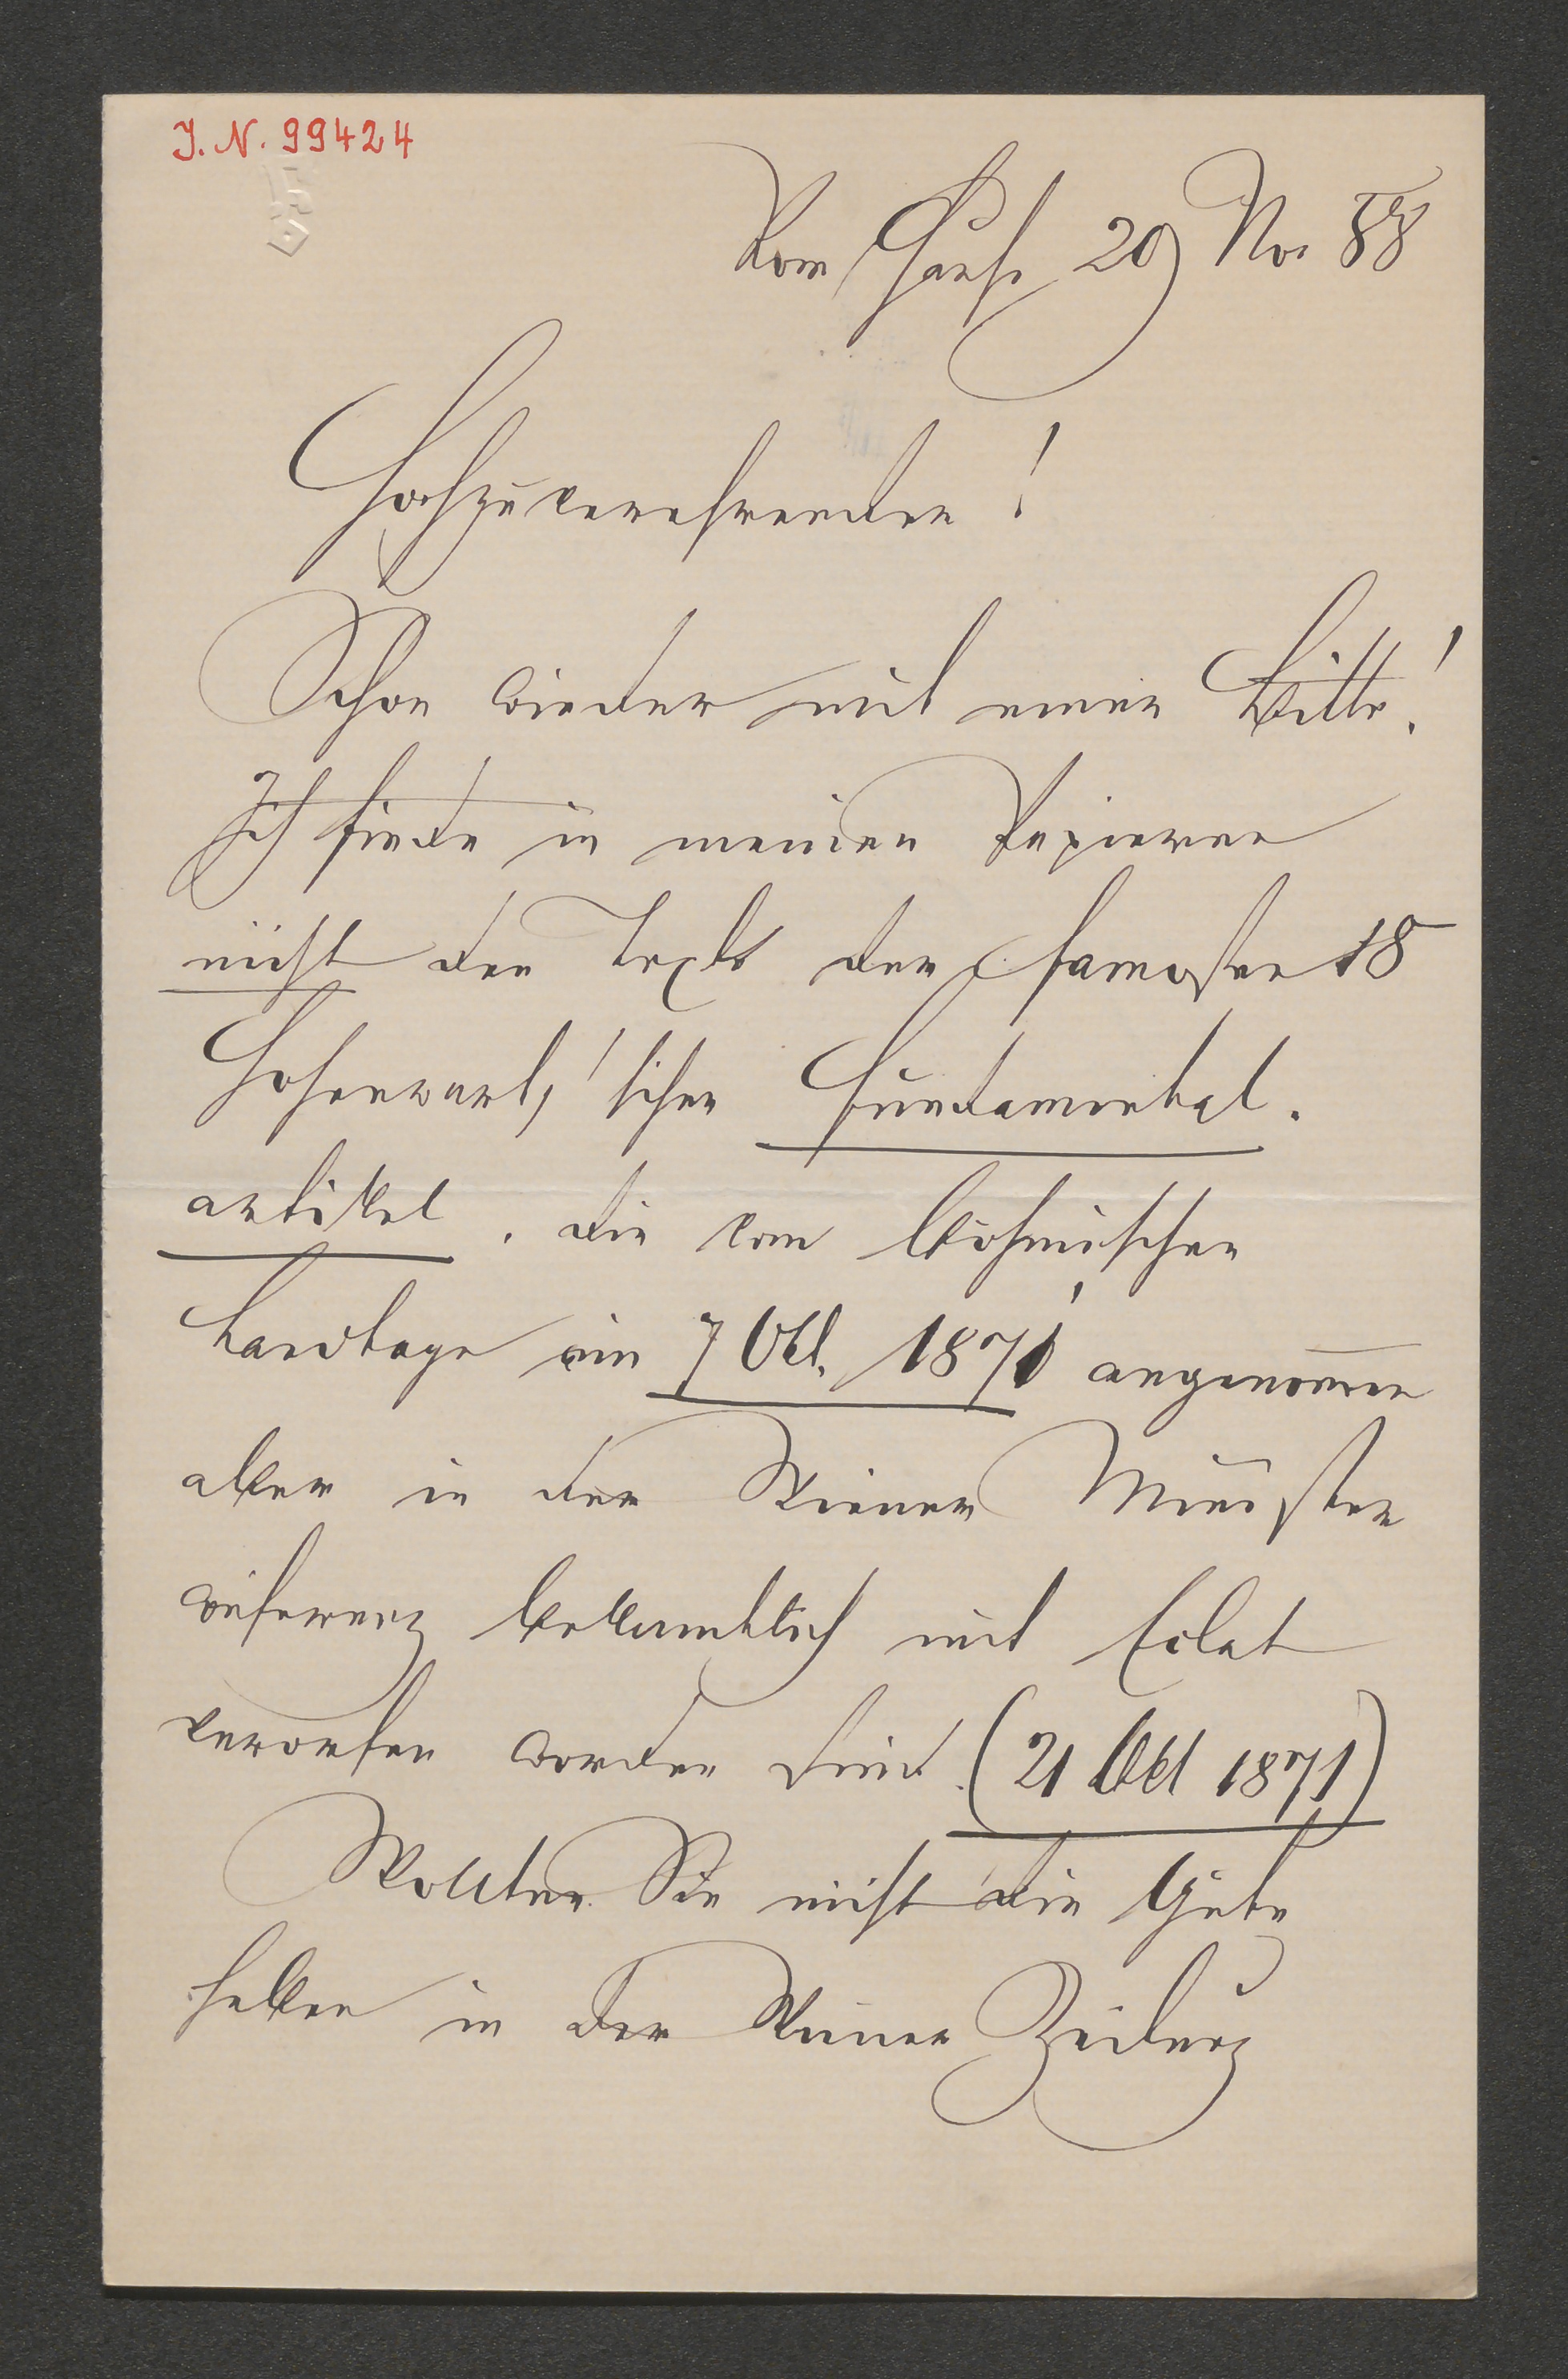 J. N. 99424
Vom Hause 29 Nov 88
Hochzuverehrender!
Schon wieder mit einer Bitte!
Ich finde in meinen Papieren
nicht den Text der famosen 18
Hohenwart'schen Fundamental-
artikel, die vom böhmischen
Landtage am 7 Okt. 1871 angenom̅en
aber in der Wiener Minister
conferenz bekanntlich mit Eclat
verworfen worden sind. (21 Okt 1871)
Wollten Sie nicht die Güte
haben in der Wiener Zeitung